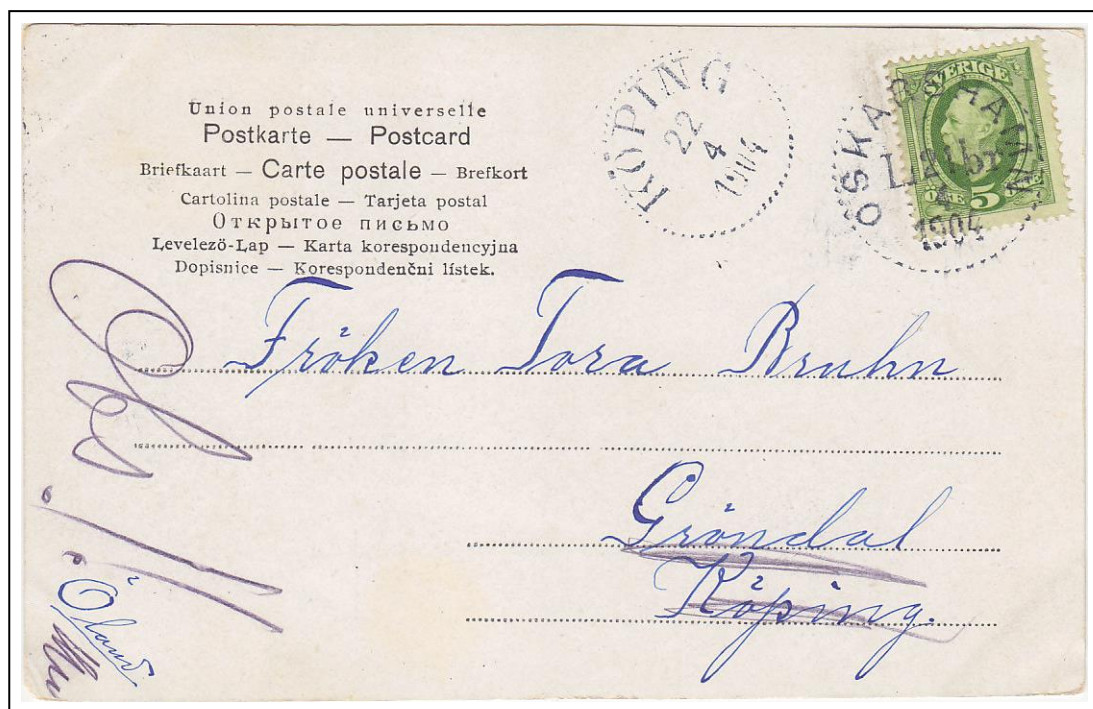 Union postale universelle
Postkarte — Postcard
Briefkaart — Carte postale — Brefkort
Cartolina postale — Tarjeta postal
Открытое письмо
Levelező-Lap — Karta korespondencyjna
Dopisnice — Korespondenčni lístek.
KÖPING
22
4
1904
SVERIGE
ÖRE 5
OSKARSHAMN
L. 21 br
4
1904
Fröken Tora Bruhn
Gröndal
Köping.
Obs!
Öland